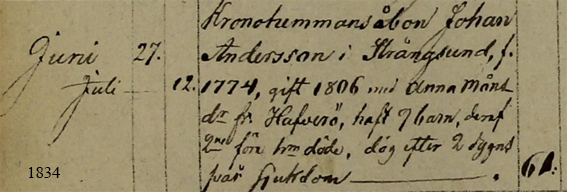 Kronohemmansåbon Johan
Juni 27. Andersson i Strängsund, f.
Juli — 12. 1774, gift 1806 med Anna Månsd
dr fr. Hafverö, haft 7 barn, deraf
2ne före hm döde, dog efter 2 dygns
sjukdom — 61.
1834